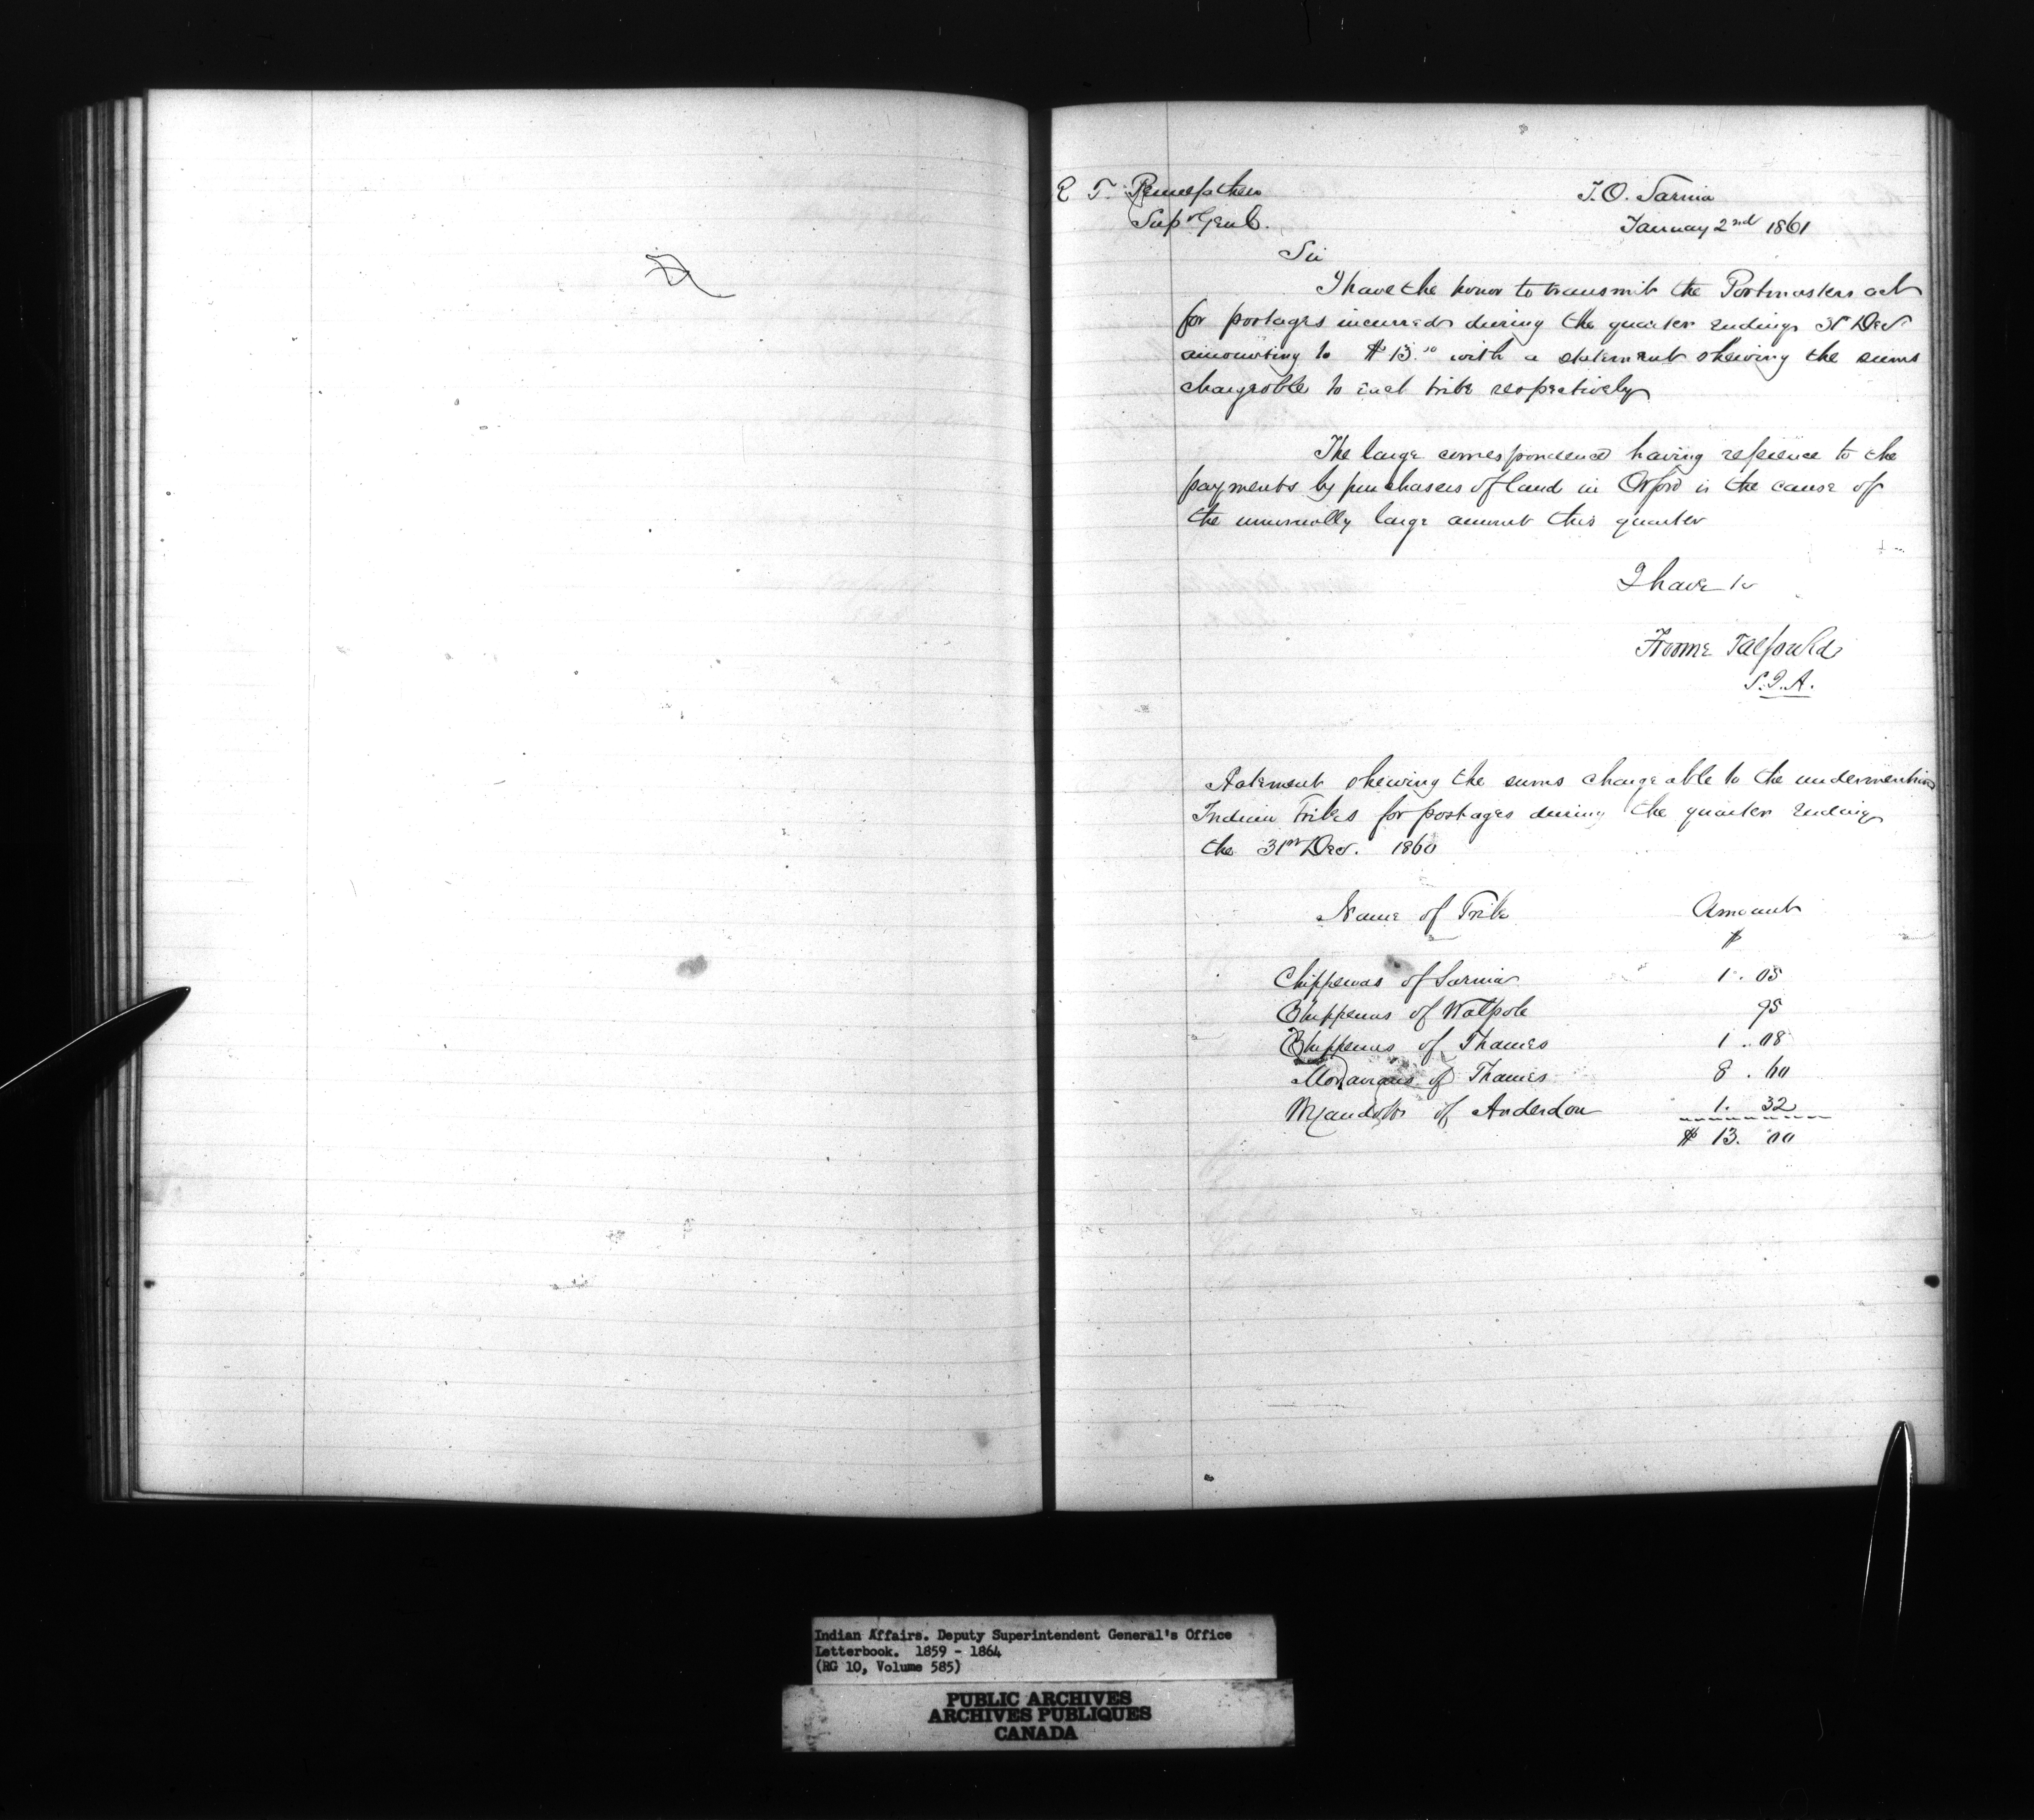 R T. Pennefather
Supt Genl.
I.O. Sarnia
January 2nd 1861
Sir
I have the honor to transmit the Postmasters act
for postages incurred during the quarter ending 31st Decr
amounting to $13.00 with a statement shewing the sums
chargeable to each tribe respectively
The large correspondence having refrence to the
payments by purchasers of land in Orford is the cause of
the unusually large amount this quarter
I have &c
Froome Talfourd
S.I.A.
Statement shewing the sums chargeable to the undermention
Indian Tribes for postages during the quarter ending
the 31st Decr. 1860
Name of Tribe Amount
$
Chippewas of Sarnia 1. 05
Chippewas of Walpole 95
Chippewas of Thames 1. 08
Moravians of Thames 8. 60
Wyandotts of Anderdon 1. 32
$ 13. 00
Indian Affairs. Deputy Superintendent General's Office
Letterbook. 1859 - 1864
(RG 10, Volume 585)
PUBLIC ARCHIVES
ARCHIVES PUBLIQUES
CANADA